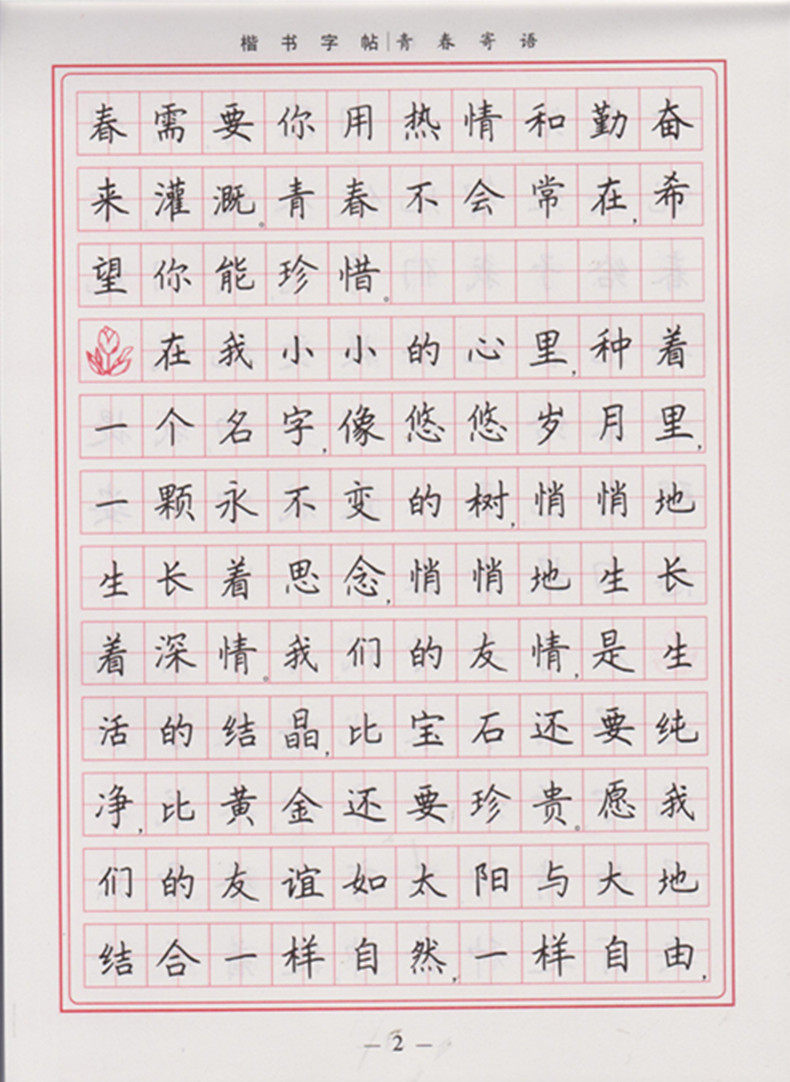 楷书字帖|青春寄语
春需要你用热情和勤奋
来灌溉。青春不会常在,希
望你能珍惜。
在我小小的心里,种着
一个名字,像悠悠岁月里,
一颗永不变的树,悄悄地
生长着思念,悄悄地生长
着深情。我们的友情,是生
活的结晶,比宝石还要纯
净,比黄金还要珍贵。愿我
们的友谊如太阳与大地
结合一样自然,一样自由,
— 2 —